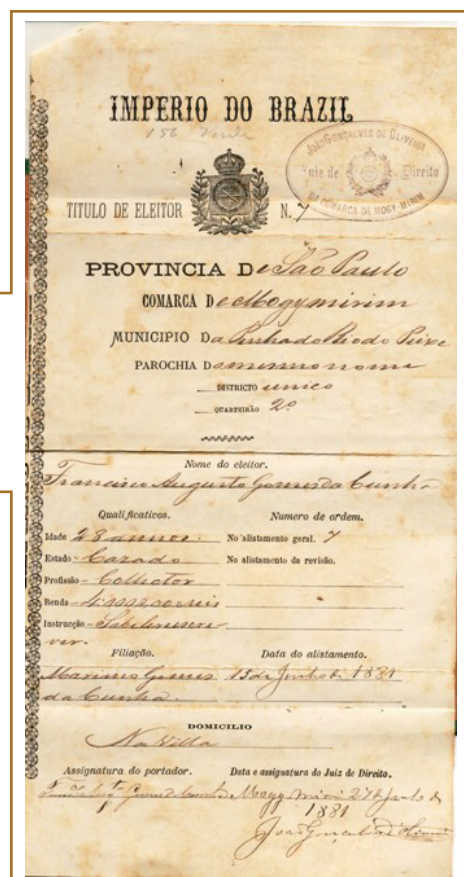 IMPERIO DO BRAZIL
156 Verde
JOÃO GONÇALVES DE OLIVEIRA
Juiz de Direito
DA COMARCA DE MOGY-MIRIM
TITULO DE ELEITOR N. 7
PROVINCIA De São Paulo
COMARCA De Mogymirim
MUNICIPIO Da Penha do Rio do Peixe
PAROCHIA Do mesmo nome
DISTRICTO unico
QUARTEIRÃO 2º
Nome do eleitor.
Francisco Augusto Gomes da Cunha
Qualificativos. Numero de ordem.
Idade 28 annos. No alistamento geral. 7
Estado - Cazado No alistamento da revisão.
Profissão - Collector
Renda -
Instrucção - Sabe ler e escre
ver.
Filiação. Data do alistamento.
Marianno Gomes 15 de Junho de 1881
da Cunha.
DOMICILIO
Na Villa
Assignatura do portador. Data e assignatura do Juiz de Direito.
Gomes da Cunha Mogy mirim 27 de Junho de
1881
João Gonçalves d'Oliveira